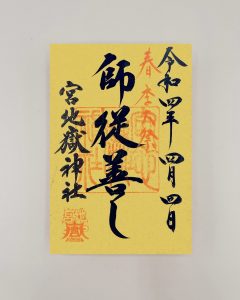 令和四年 四月四日
春季大祭
師従善し
宮地嶽神社